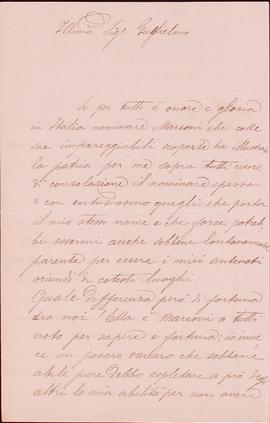 Illmo Sigr. Guglielmo
Se per tutti è onore e gloria
in Italia nominare Marconi che colle
sue impareggiabili scoperte ha illustrato
la patria per me sopra tutti riesce
di consolazione il nominare spesso
e con entusiasmo quegli che porta
il mio stesso nome e che forse potreb
be essermi anche sebbene lontanamente
parente per essere i miei antenati
oriundi di cotesti luoghi.
Quale differenza però di fortuna
tra noi! Ella è Marconi a tutti
noto per sapere e fortuna; io inve
ce un povero che sebbene
abile pure debbo espletare a prò degli
altri la mia abilità per non avere